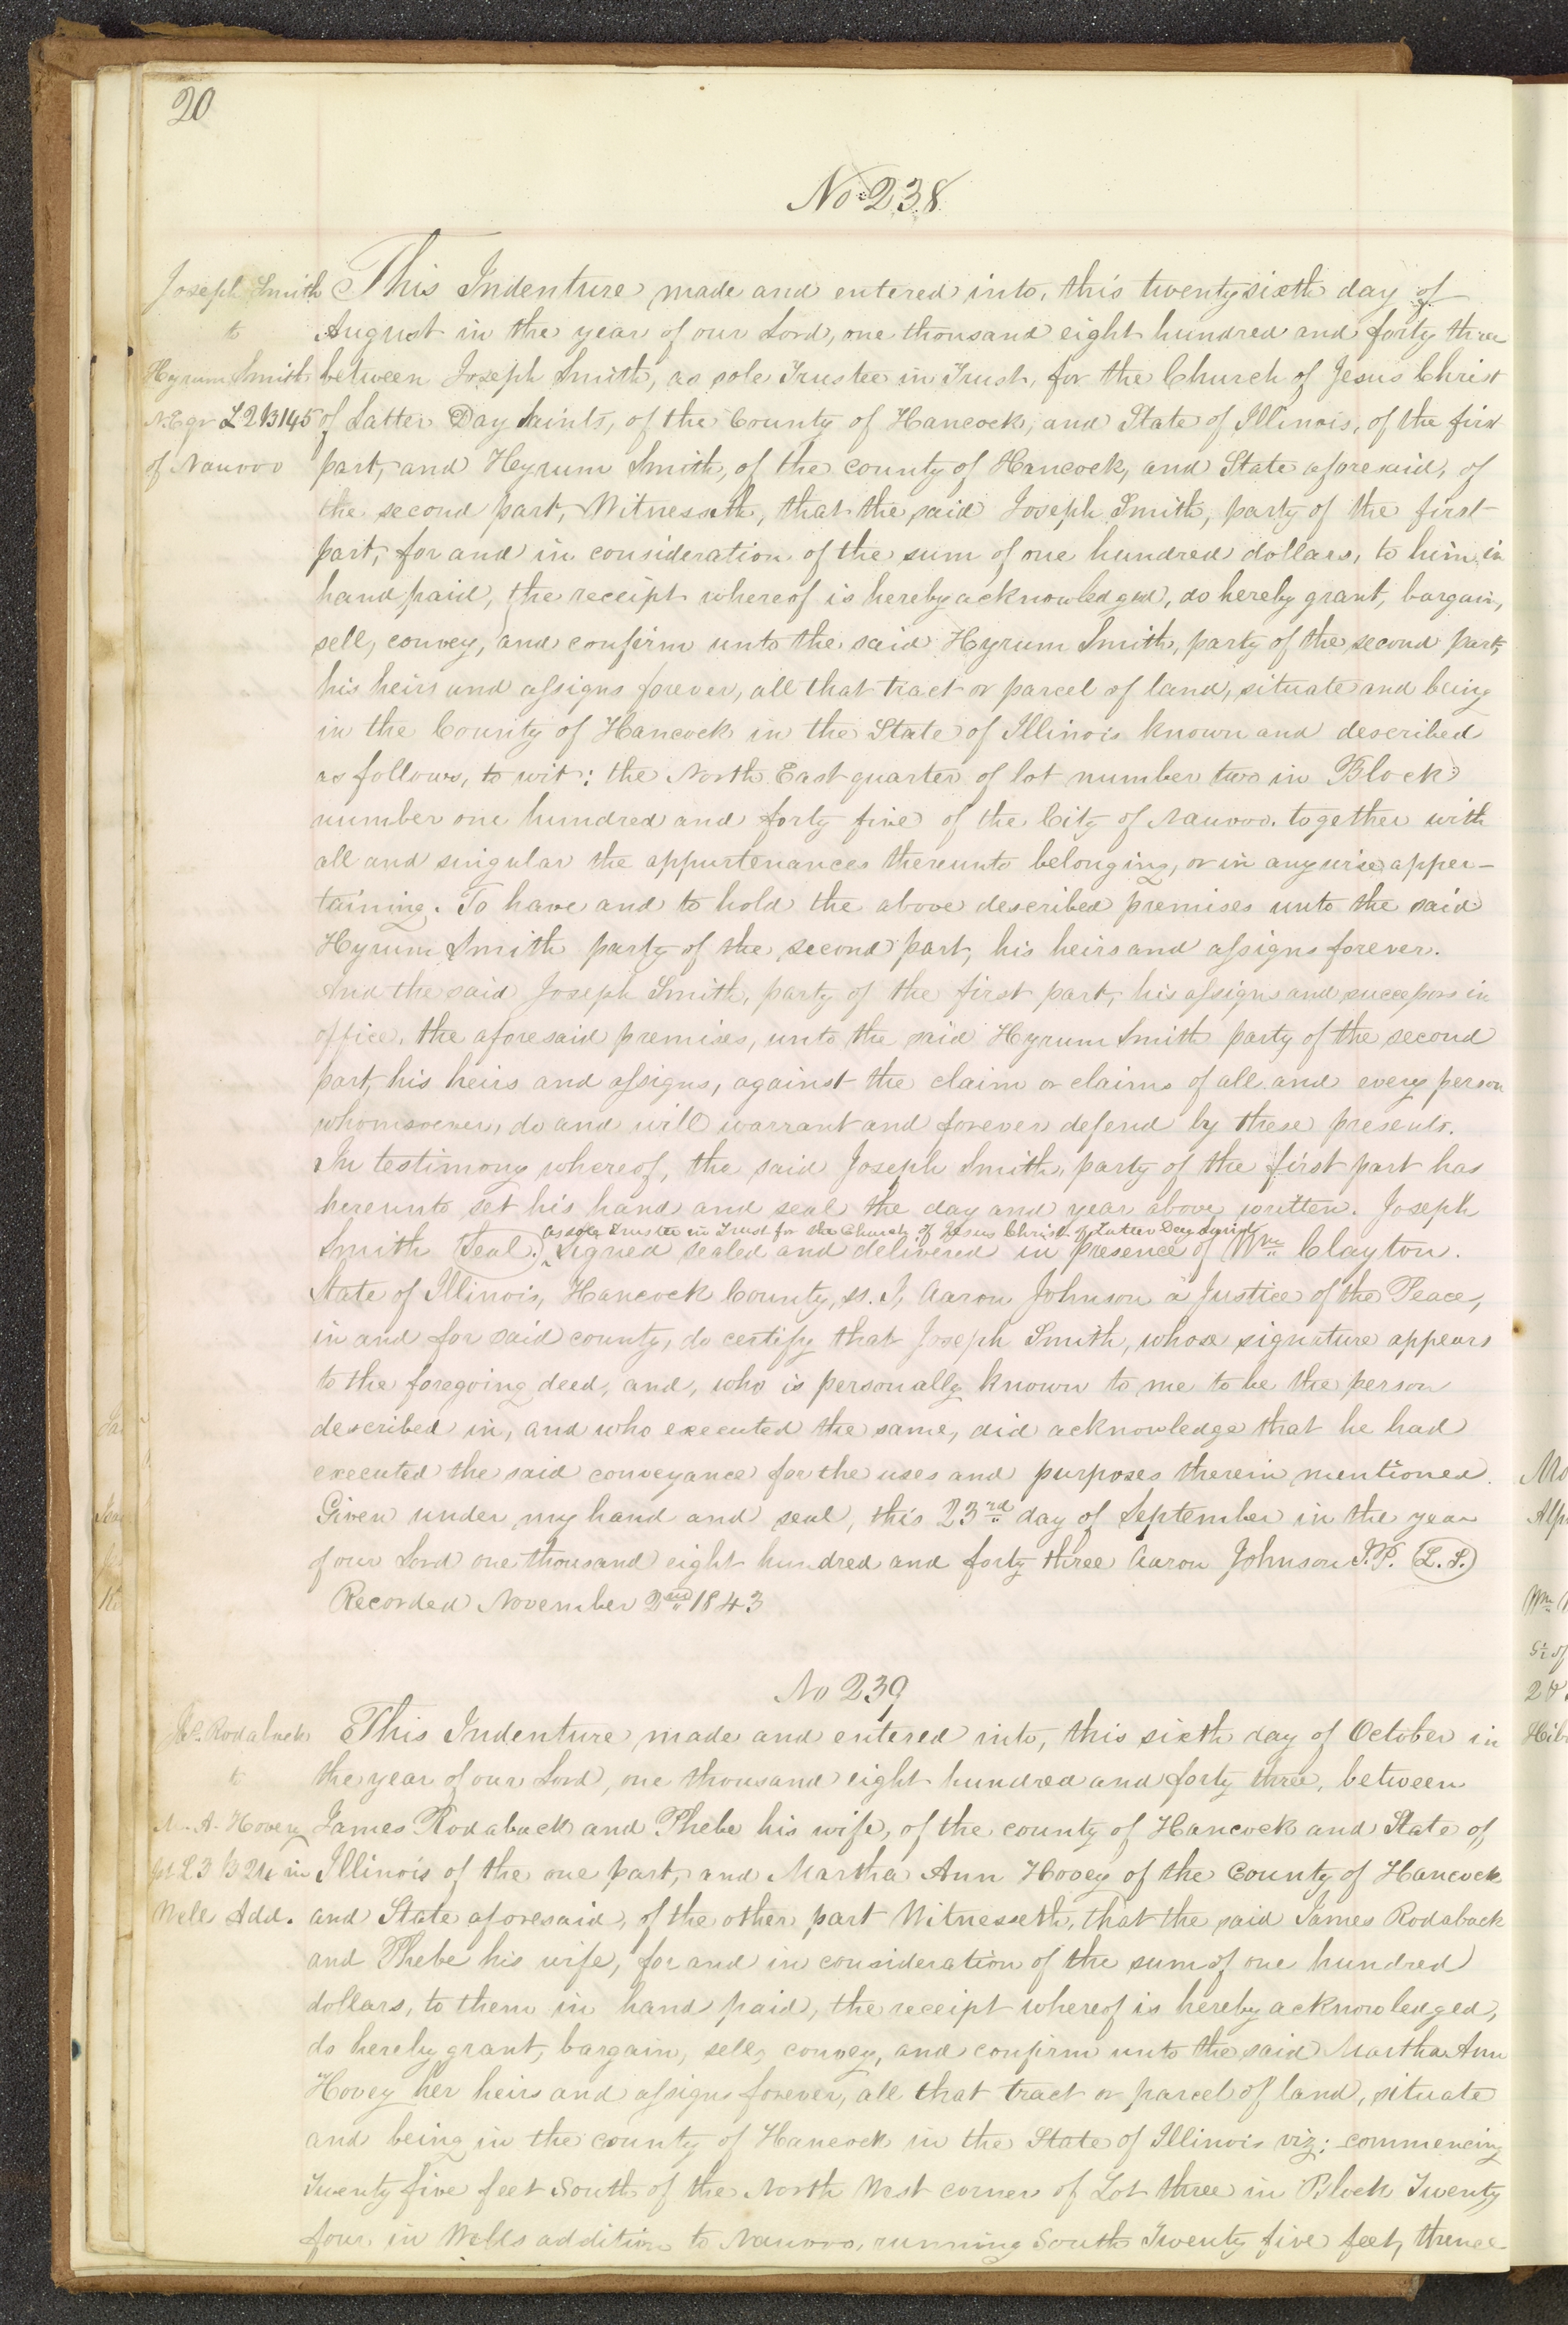 20
No 238
Joseph Smith
to
Hyrum Smith
N.E qr L 2 B 145
of Nauvoo
This Indenture made and entered into, this twenty sixth day of
August in the year of our Lord, one thousand eight hundred and forty three
between Joseph Smith, as sole Trustee in Trust, for the Church of Jesus Christ
of Latter Day Saints, of the County of Hancock, and State of Illinois, of the first
part, and Hyrum Smith, of the county of Hancock, and State aforesaid, of
the second part, Witnesseth, that the said Joseph Smith, party of the first
part, for and in consideration of the sum of one hundred dollars, to him in
hand paid, the receipt whereof is hereby acknowledged, do hereby grant, bargain,
sell, convey, and confirm unto the said Hyrum Smith, party of the second part,
his heirs and assigns forever, all that tract or parcel of land, situate and being
in the County of Hancock in the State of Illinois known and described
as follows, to wit: the North East quarter of lot number two in Block
number one hundred and forty five of the City of Nauvoo. together with
all and singular the appurtenances thereunto belonging, or in anywise apper-
taining. To have and to hold the above described premises unto the said
Hyrum Smith party of the second part, his heirs and assigns forever.
And the said Joseph Smith, party of the first part, his assigns and successors in
office, the aforesaid premises, unto the said Hyrum Smith party of the second
part, his heirs and assigns, against the claim or claims of all and every person
whomsoever, do and will warrant and forever defend by these presents.
In testimony whereof, the said Joseph Smith, party of the first part has
hereunto set his hand and seal the day and year above written. Joseph
as sole Trustee in Trust for the Church of Jesus Christ of Latter Day Saints
Smith (Seal.) ^ Signed sealed and delivered in presence of Wm Clayton.
State of Illinois, Hancock County, ss. I, Aaron Johnson a Justice of the Peace,
in and for said county, do certify that Joseph Smith, whose signature appears
to the foregoing deed, and, who is personally known to me to be the person
described in, and who executed the same, did acknowledge that he had
executed the said conveyance for the uses and purposes therein mentioned.
Given under my hand and seal, this 23rd day of September in the year
of our Lord one thousand eight hundred and forty three Aaron Johnson J.P. (L.S.)
Recorded November 2nd 1843
No 239
Jas. Rodaback
to
M. A. Hovey
L 3 B 24 in
Wells Add.
This Indenture made and entered into, this sixth day of October in
the year of our Lord, one thousand eight hundred and forty three, between
James Rodaback and Phebe his wife, of the county of Hancock and State of
Illinois of the one part, and Martha Ann Hovey of the County of Hancock
and State aforesaid, of the other part Witnesseth, that the said James Rodaback
and Phebe his wife, for and in consideration of the sum of one hundred
dollars, to them in hand paid, the receipt whereof is hereby acknowledged,
do hereby grant, bargain, sell, convey, and confirm unto the said Martha Ann
Hovey her heirs and assigns forever, all that tract or parcel of land, situate
and being in the county of Hancock in the State of Illinois viz: commencing
Twenty five feet South of the North West corner of Lot three in Block Twenty
four in Wells addition to Nauvoo, running South Twenty five feet, thence